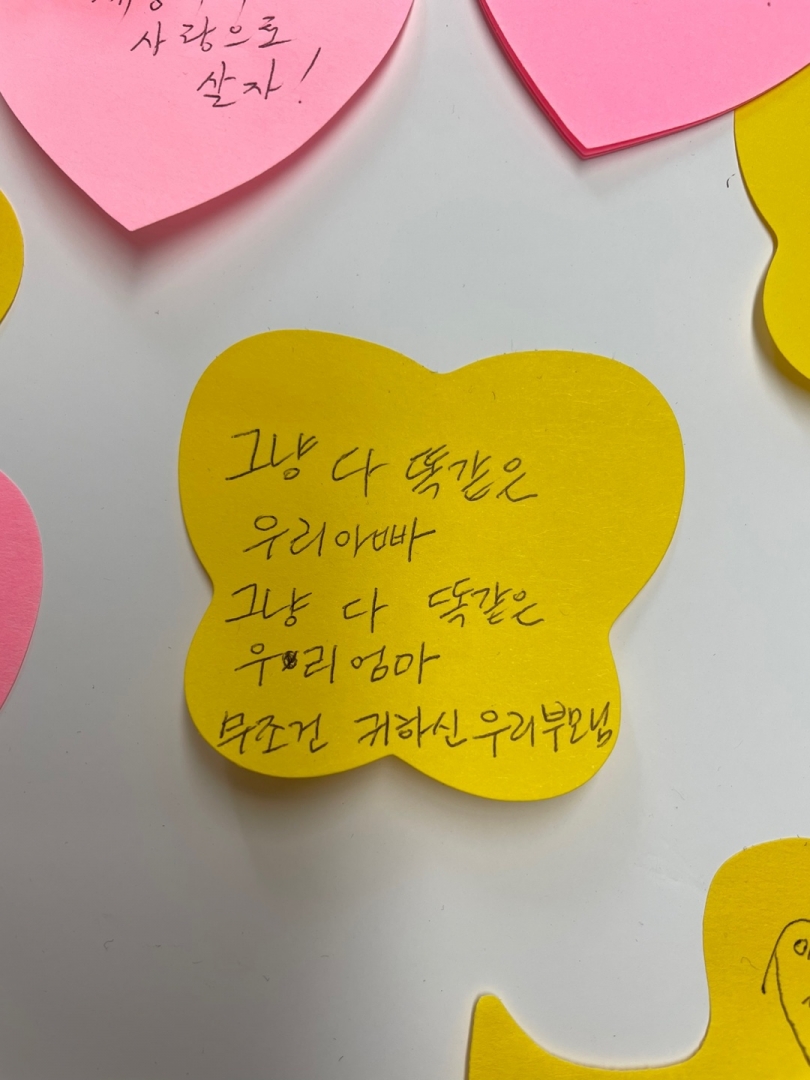 사랑으로
살자!
그냥 다 똑같은
우리아빠
그냥 다 똑같은
우리엄마
무조건 귀하신우리부모님